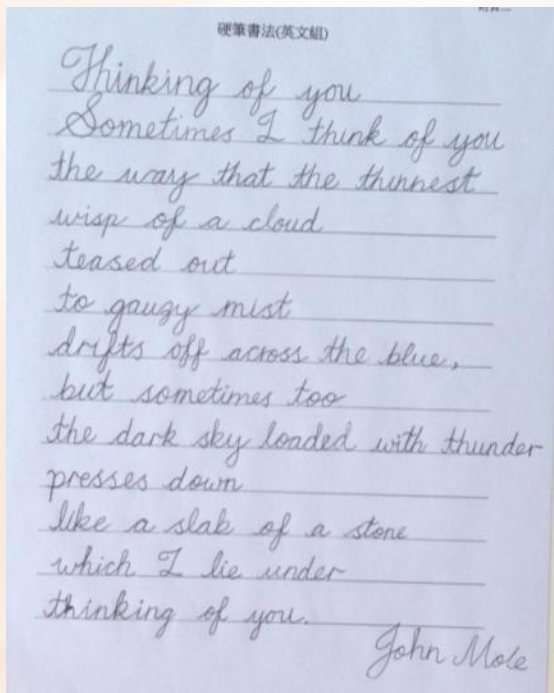 硬筆書法(英文組)
Thinking of you
Sometimes I think of you
the way that the thinnest
wisp of a cloud
teased out
to gaugy mist
drifts off across the blue,
but sometimes too
the dark sky loaded with thunder
presses down
like a slab of a stone
which I lie under
thinking of you.
John Mole